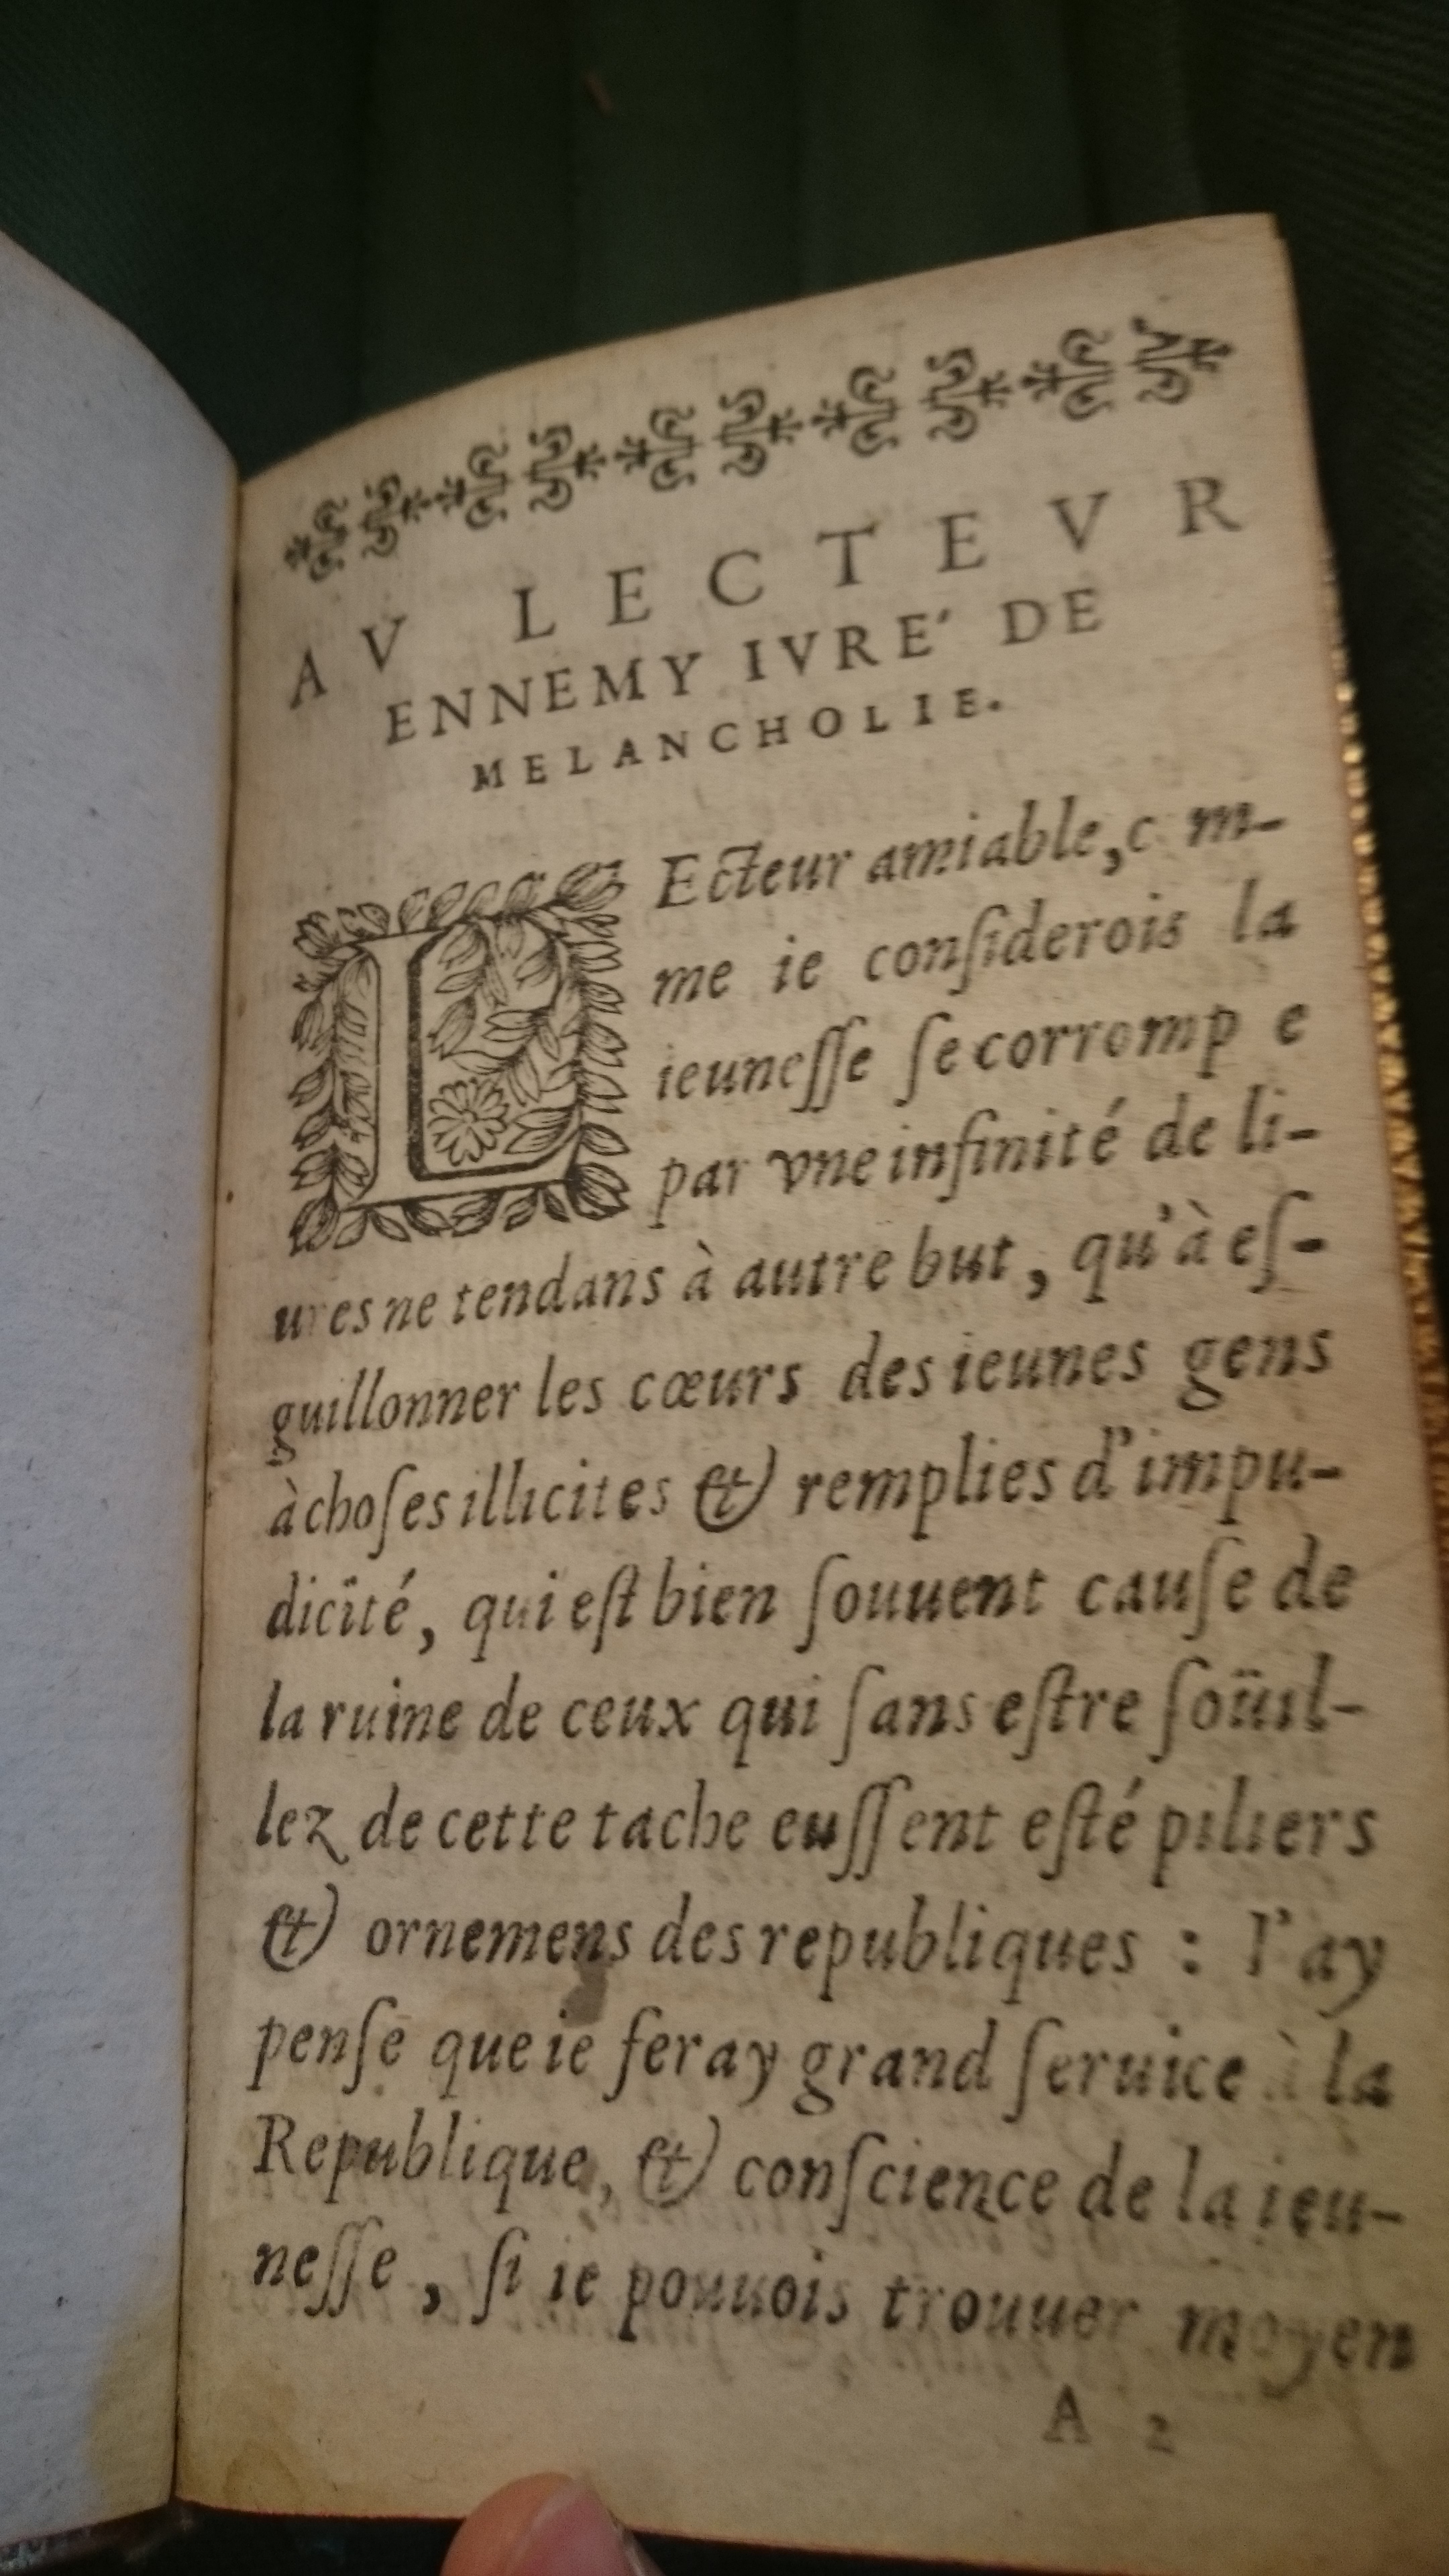 AV LECTEVR
ENNEMY IVRE' DE
MELANCHOLIE.
LEcteur amiable, c m-
me ie conſiderois la
ieuneſſe ſe corromp e
par vne infinité de li-
ures ne tendans à autre but, qu'à eſ-
guillonner les cœurs des ieunes gens
à choſes illicites & remplies d'impu-
dicité, qui eſt bien ſouuent cauſe de
la ruine de ceux qui ſans eſtre ſoüil-
lez de cette tache euſſent eſté piliers
& ornemens des republiques : I'ay
penſe que ie feray grand ſeruice à la
Republique, & conſcience de la ieu-
neſſe, ſi ie pouuois trouuer moyen
A 2